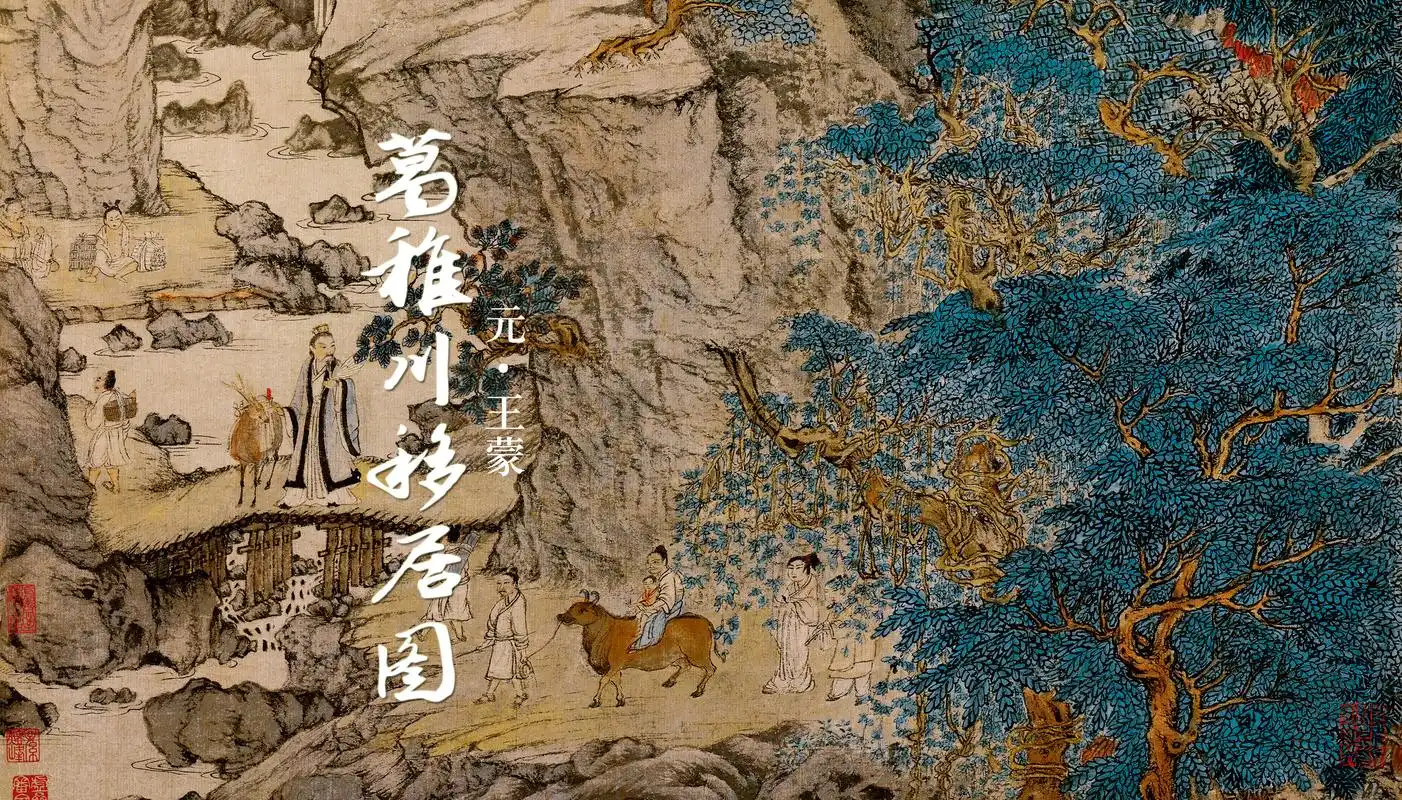 葛稚川移居图
元·王蒙